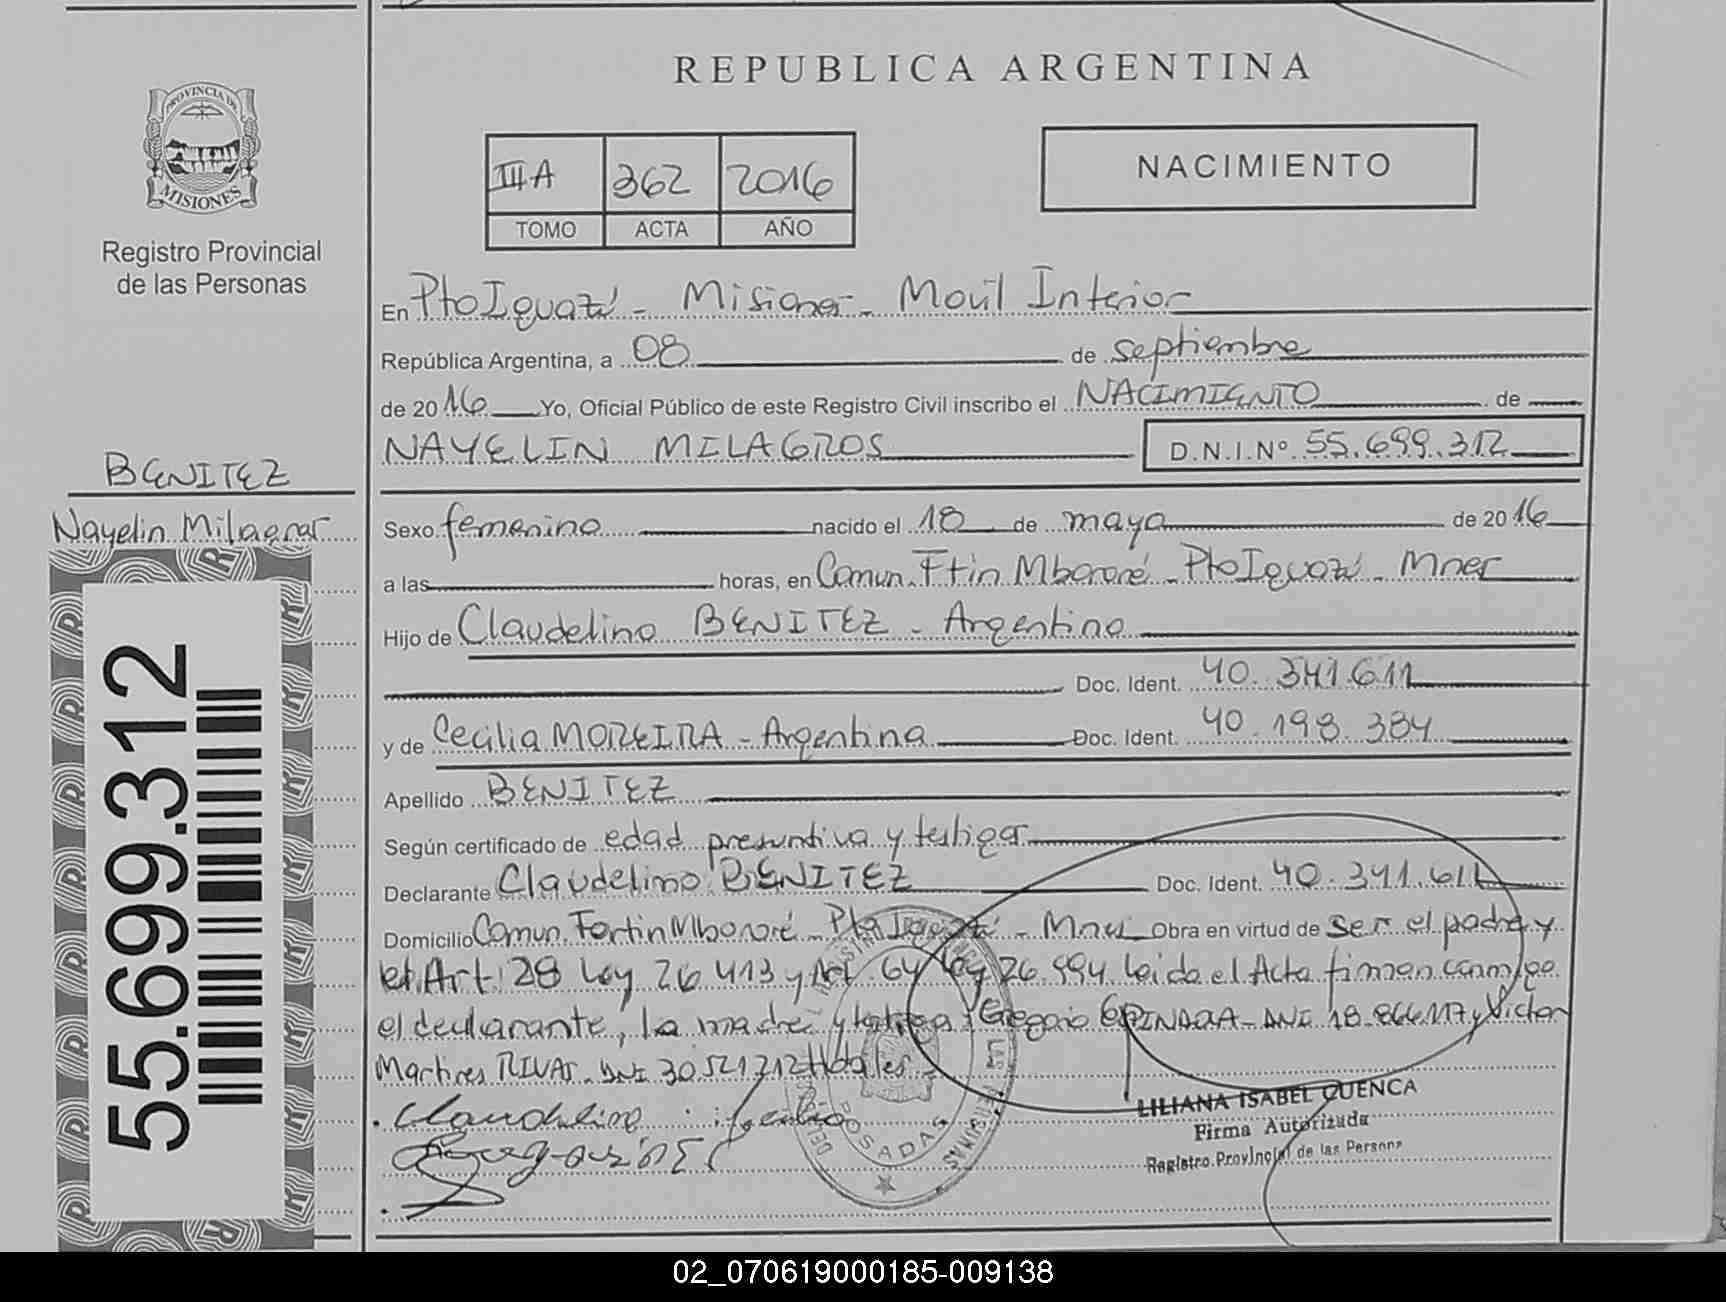 REPUBLICA ARGENTINA
PROVINCIA DE
MISIONES
Registro Provincial
de las Personas
III A 362 2016
TOMO ACTA AÑO
NACIMIENTO
En Pto Iguazú - Misiones - Movil Interior
República Argentina, a 08 de septiembre
de 2016 Yo, Oficial Público de este Registro Civil inscribo el NACIMIENTO de
NAYELIN MILAGROS D.N.I.Nº 55.699.312
BENITEZ
Nayelin Milagros
55.699.312
Sexo femenino nacido el 18 de mayo de 2016
a las horas, en Comun. Ftin Mbororé - Pto Iguazú - Mnes
Hijo de Claudelino BENITEZ - Argentino
Doc. Ident. 40.341.611
y de Cecilia MOREIRA - Argentina Doc. Ident. 40.198.384
Apellido BENITEZ
Según certificado de edad presuntiva y testigos
Declarante Claudelino BENITEZ Doc. Ident. 40.341.611
Domicilio Comun. Fortin Mbororé - Pto Iguazú - Mnes Obra en virtud de ser el padre y
el Art. 28 Ley 26.413 y Art. 64 Ley 26.994 leida el Acta firman conmigo
el declarante, la madre y testigos: Gregorio DNI 18.866.117 y Victor
Martires RIVAS - DNI 30521712
Claudelino
POSADAS
LILIANA ISABEL CUENCA
Firma Autorizada
Registro Provincial de las Persona
02_070619000185-009138